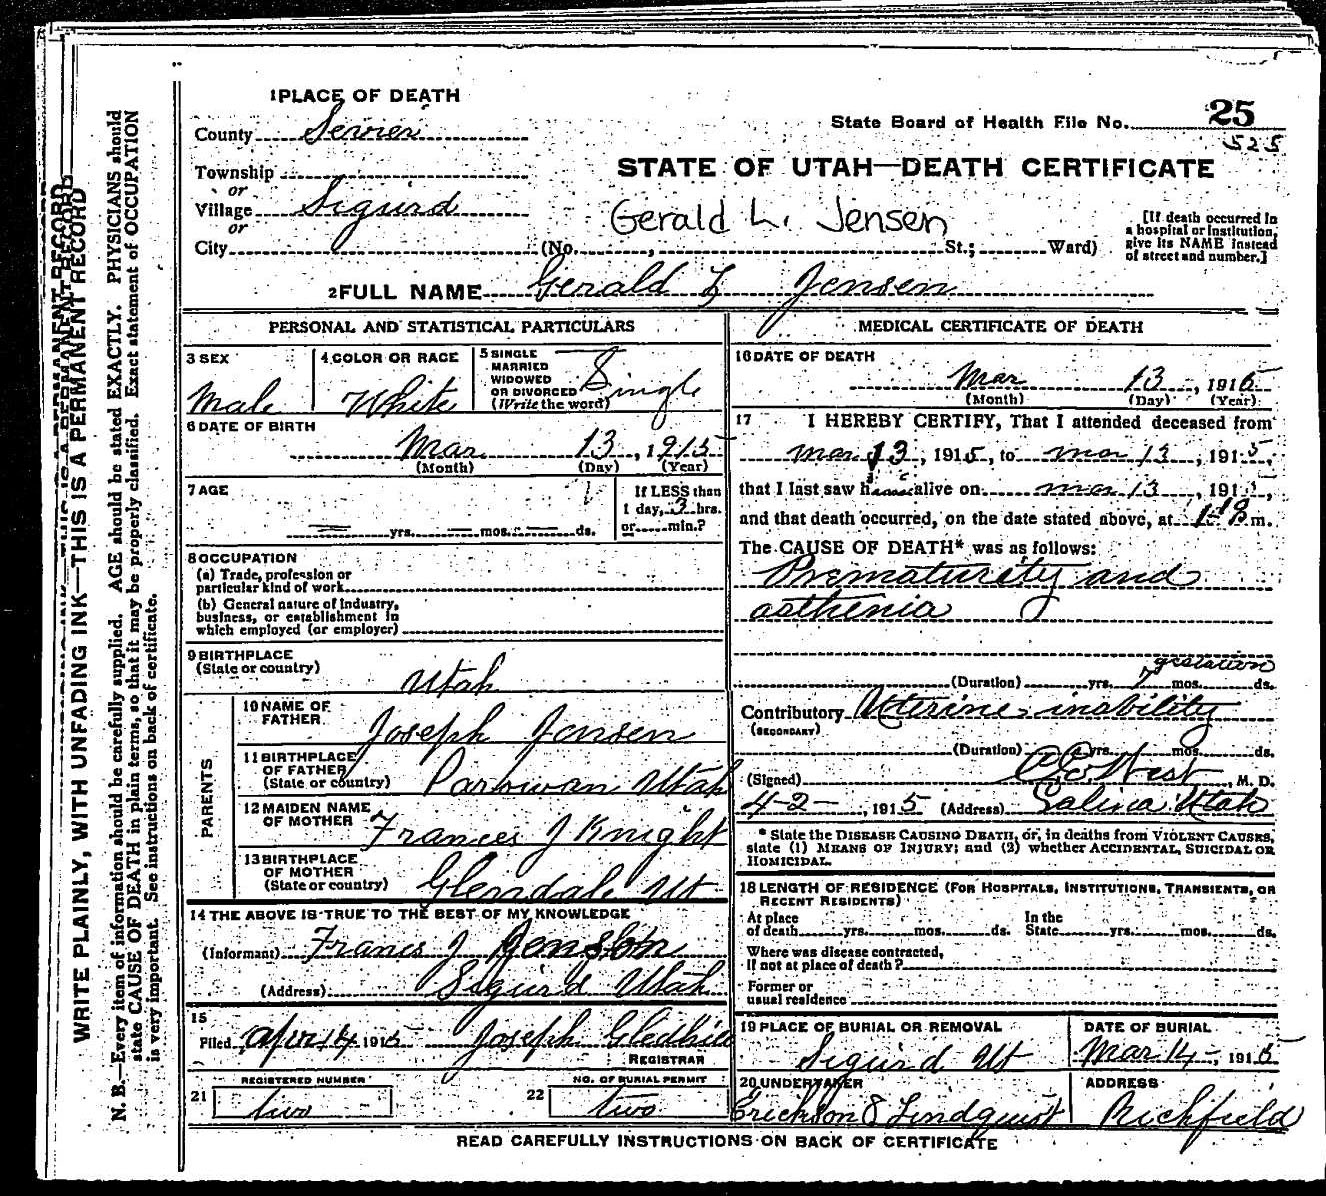 1 PLACE OF DEATH
County Sevier
Township
or
Village Sigurd
or
City (No. , St.; Ward)
State Board of Health File No. 25
525
STATE OF UTAH—DEATH CERTIFICATE
Gerald L. Jensen
[If death occurred in
a hospital or institution,
give its NAME instead
of street and number.]
2 FULL NAME Gerald L Jensen
PERSONAL AND STATISTICAL PARTICULARS
3 SEX
Male
4 COLOR OR RACE
White
5 SINGLE
MARRIED
WIDOWED
OR DIVORCED
(Write the word)
Single
6 DATE OF BIRTH
Mar 13, 1915
(Month) (Day) (Year)
7 AGE
yrs. mos. ds.
If LESS than
1 day, 3 hrs.
or min.?
8 OCCUPATION
(a) Trade, profession or
particular kind of work
(b) General nature of industry,
business, or establishment in
which employed (or employer)
9 BIRTHPLACE
(State or country)
Utah
PARENTS
10 NAME OF
FATHER
Joseph Jensen
11 BIRTHPLACE
OF FATHER
(State or country) Parowan Utah
12 MAIDEN NAME
OF MOTHER
Frances J Knight
13 BIRTHPLACE
OF MOTHER
(State or country) Glendale Ut
14 THE ABOVE IS TRUE TO THE BEST OF MY KNOWLEDGE
(Informant) Frances J
(Address) Sigurd Utah
15
Filed Apr 14 1915 Joseph Gledhill
REGISTRAR
REGISTERED NUMBER
21 two
NO. OF BURIAL PERMIT
22 two
MEDICAL CERTIFICATE OF DEATH
16 DATE OF DEATH
Mar 13, 1915
(Month) (Day) (Year)
17 I HEREBY CERTIFY, That I attended deceased from
mar 13, 1915, to mar 13, 1915,
that I last saw h alive on mar 13, 191
and that death occurred, on the date stated above, at m.
The CAUSE OF DEATH* was as follows:
Prematurity and
asthenia
gestation
(Duration) yrs. 7 mos. ds.
Contributory Utterine inability
(SECONDARY)
(Duration) yrs. mos. ds.
(Signed) West, M. D.
4-2-, 1915 (Address) Salina Utah
* State the DISEASE CAUSING DEATH, or, in deaths from VIOLENT CAUSES,
state (1) MEANS OF INJURY; and (2) whether ACCIDENTAL, SUICIDAL OR
HOMICIDAL.
18 LENGTH OF RESIDENCE (FOR HOSPITALS, INSTITUTIONS, TRANSIENTS, OR
RECENT RESIDENTS)
At place
of death yrs. mos. ds.
In the
State yrs. mos. ds.
Where was disease contracted,
If not at place of death?
Former or
usual residence
19 PLACE OF BURIAL OR REMOVAL
Sigurd Ut
DATE OF BURIAL
Mar 14, 1915
20 UNDERTAKER
Erickson & Lindquist
ADDRESS
Richfield
READ CAREFULLY INSTRUCTIONS ON BACK OF CERTIFICATE
WRITE PLAINLY, WITH UNFADING INK—THIS IS A PERMANENT RECORD
N. B.—Every item of information should be carefully supplied. AGE should be stated EXACTLY. PHYSICIANS should
state CAUSE OF DEATH in plain terms, so that it may be properly classified. Exact statement of OCCUPATION
is very important. See instructions on back of certificate.